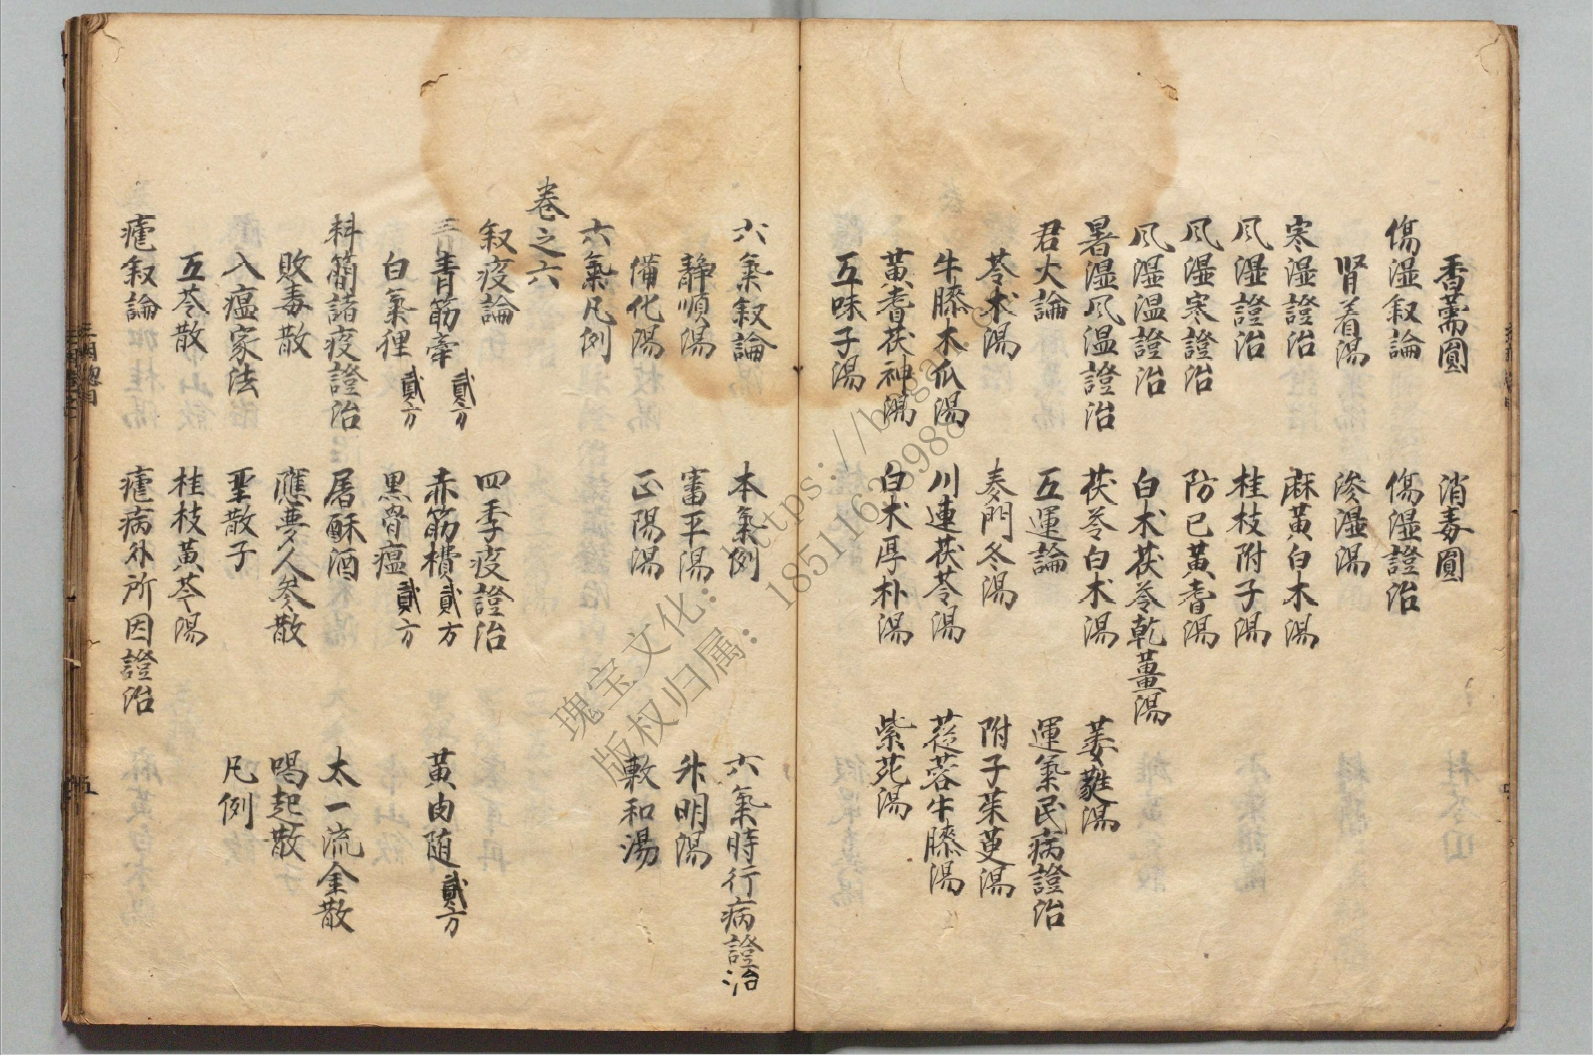 香薷圓 消毒圓
傷湿叙論 傷湿證治
腎着湯 滲湿湯
寒湿證治 麻黃白术湯
風湿證治 桂枝附子湯
風湿寒證治 防已黃耆湯
風湿温證治 白术茯苓乾薑湯
暑湿風温證治 茯苓白术湯 萎蕤湯
君火論 五運論 運氣民病證治
苓术湯 麥門冬湯 附子茱萸湯
牛膝木瓜湯 川連茯苓湯 蓯蓉牛膝湯
黃耆茯神湯 白术厚朴湯 紫菀湯
五味子湯
六氣叙論 本氣例 六氣時行病證治
靜順湯 審平湯 升明湯
備化湯 正陽湯 敷和湯
六氣凡例
卷之六
叙疫論 四季疫證治
青筋牽貳方 赤筋櫕貳方 黃肉随貳方
白氣狸貳方 黑骨瘟貳方
料簡諸疫證治 屠酥酒 太一流金散
敗毒散 應夢人參散 喝起散
入瘟家法 聖散子 凡例
五苓散 桂枝黃芩湯
瘧叙論 瘧病外所因證治
五
瑰宝文化：https://bogac
版权归属：18511623988